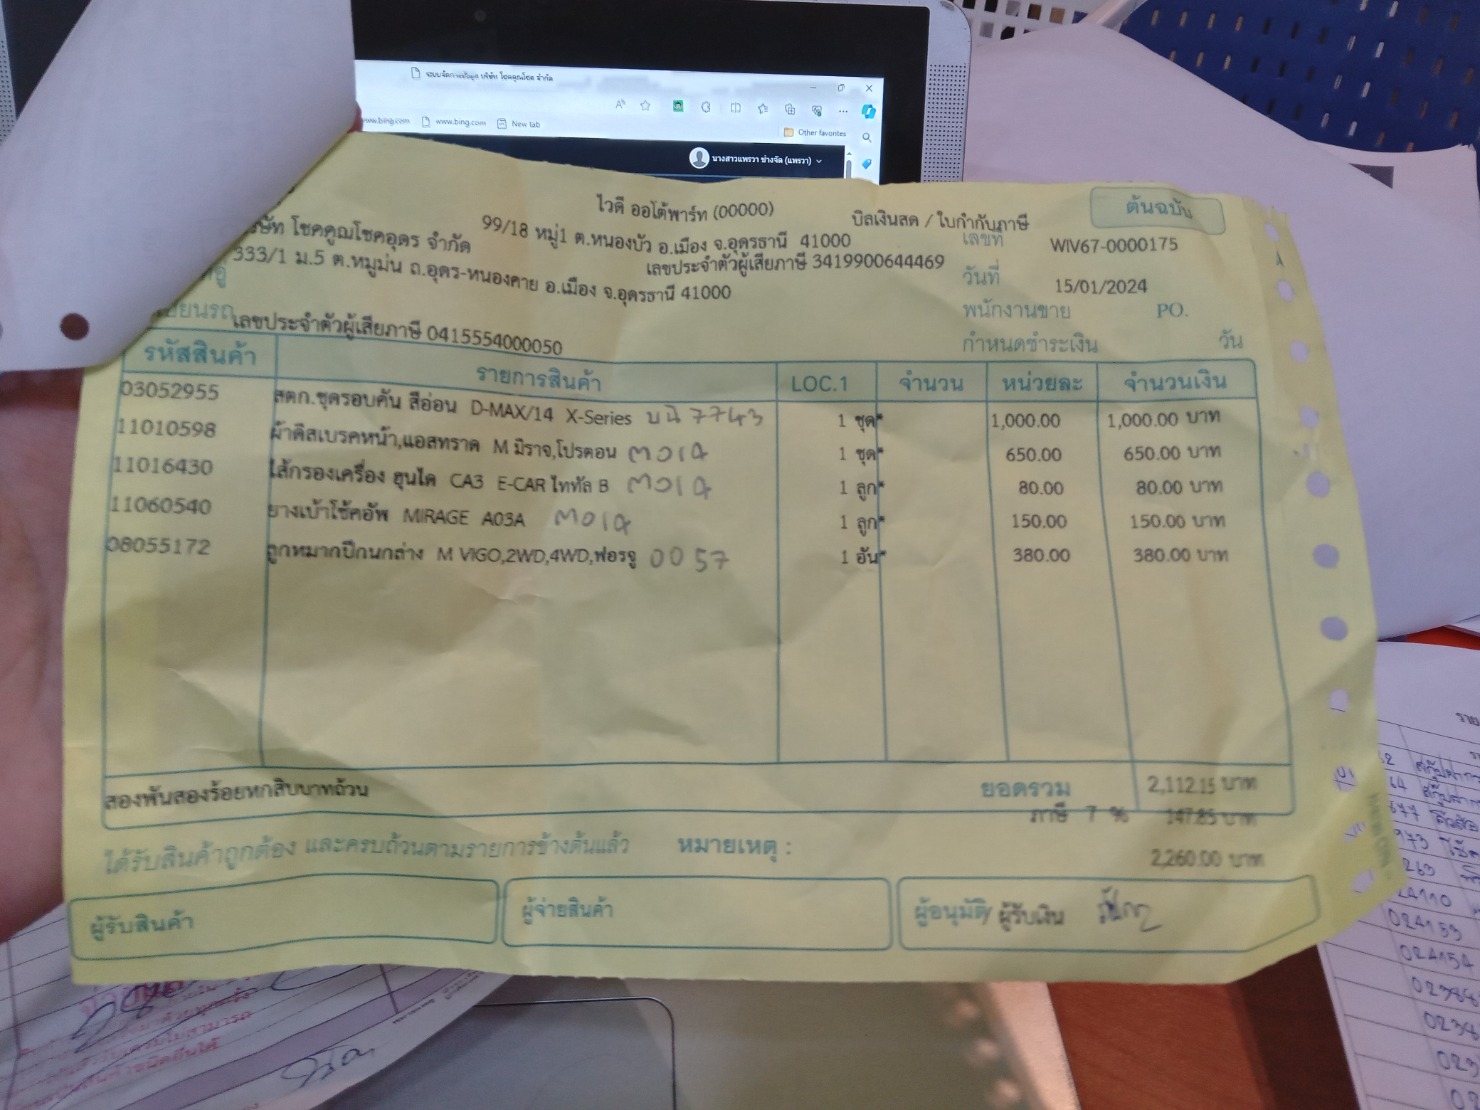 ระบบจัดการข้อมูล บริษัท โชคคูณโชค จำกัด
www.bing.com www.bing.com New tab
Other favorites
นางสาวแพรวา ช่างจัด (แพรวา)
ต้นฉบับ
ไวดี ออโต้พาร์ท (00000)
บิลเงินสด / ใบกำกับภาษี
99/18 หมู่1 ต.หนองบัว อ.เมือง จ.อุดรธานี 41000
เลขประจำตัวผู้เสียภาษี 3419900644469
โชคคูณโชคอุดร จำกัด
เลขที่ WIV67-0000175
333/1 ม.5 ต.หมูม่น ถ.อุดร-หนองคาย อ.เมือง จ.อุดรธานี 41000
วันที่ 15/01/2024
พนักงานขาย PO.
เลขประจำตัวผู้เสียภาษี 0415554000050
กำหนดชำระเงิน วัน
รหัสสินค้า รายการสินค้า LOC.1 จำนวน หน่วยละ จำนวนเงิน
03052955 สตก.ชุดรอบคัน สีอ่อน D-MAX/14 X-Series บน 7743 1 ชุด* 1,000.00 1,000.00 บาท
11010598 ผ้าดิสเบรคหน้า,แอสทราด M มิราจ,โปรตอน M019 1 ชุด* 650.00 650.00 บาท
11016430 ไส้กรองเครื่อง ฮุนได CA3 E-CAR ไททัล B M019 1 ลูก* 80.00 80.00 บาท
11060540 ยางเบ้าโช้คอัพ MIRAGE A03A M019 1 ลูก* 150.00 150.00 บาท
08055172 ลูกหมากปีกนกล่าง M VIGO,2WD,4WD,ฟอรจู 0057 1 อัน* 380.00 380.00 บาท
สองพันสองร้อยหกสิบบาทถ้วน ยอดรวม 2,112.15 บาท
ภาษี 7 % 147.85 บาท
ได้รับสินค้าถูกต้อง และครบถ้วนตามรายการข้างต้นแล้ว หมายเหตุ : 2,260.00 บาท
ผู้รับสินค้า ผู้จ่ายสินค้า ผู้อนุมัติ/ ผู้รับเงิน
024110
024153
024154